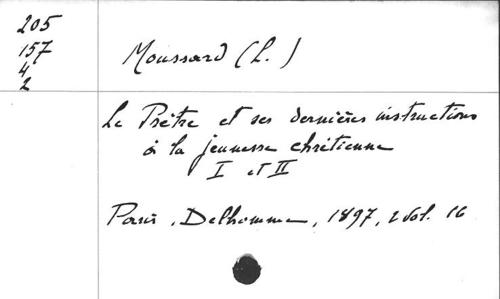 205
157
4
2
Moussard (L.)
Le Prêtre et ses dernières instructions
à la jeunesse chrétienne
I et II
Paris, Delhomme, 1897, 2 vol. 16